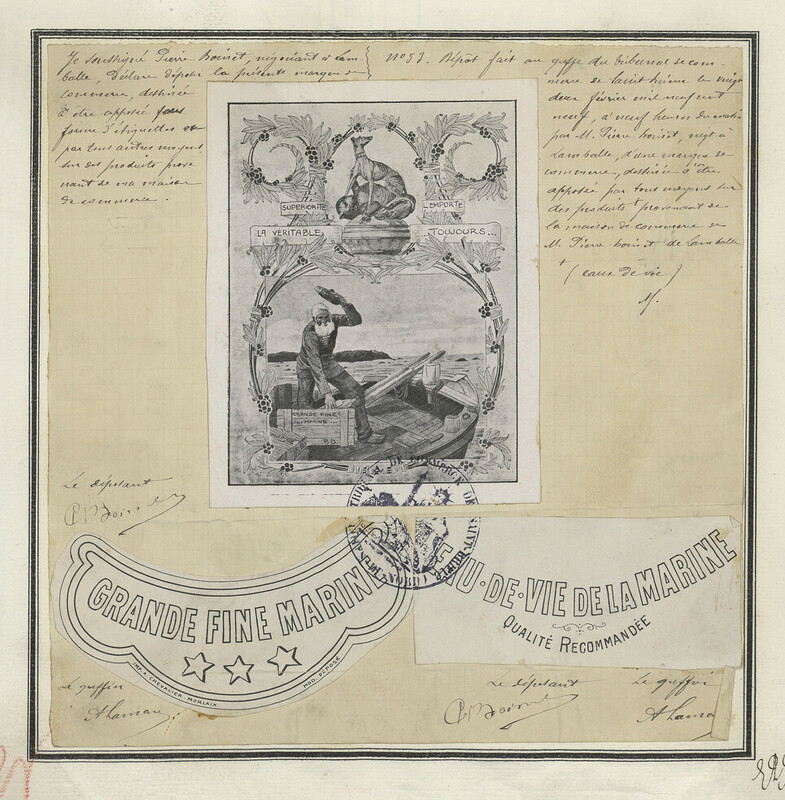 Je soussigné Pierre Boinet, négociant à Lam-
balle, déclare déposer la présente marque de
commerce, destinée
à être apposée sous
forme d'étiquettes et
par tous autres moyens
sur des produits prove
nant de ma maison
de commerce.
N° 53. Dépôt fait au greffe du tribunal de com-
merce de Saint Brieuc le vingt
deux février mil neuf cent
neuf, à neuf heures du matin
par M. Pierre Boinet, négt à
Lamballe, d'une marque de
commerce, destinée à être
apposée par tous moyens sur
des produits + provenant de
la maison de commerce de
M. Pierre Boinet de Lamballe
+ (eaux de vie)
SUPERIORITÉ
L'EMPORTE
LA VÉRITABLE
...TOUJOURS...
GRANDE FINE
MARINE...
B.B.
Le déposant
TRIBUNAL DE COMMERCE DE
GRANDE FINE MARINE
IMP. A. CHEVALIER - MORLAIX
MOD. DÉPOSÉ
EAU·DE·VIE DE LA MARINE
QUALITÉ RECOMMANDÉE
Le greffier
Le déposant
Le greffi